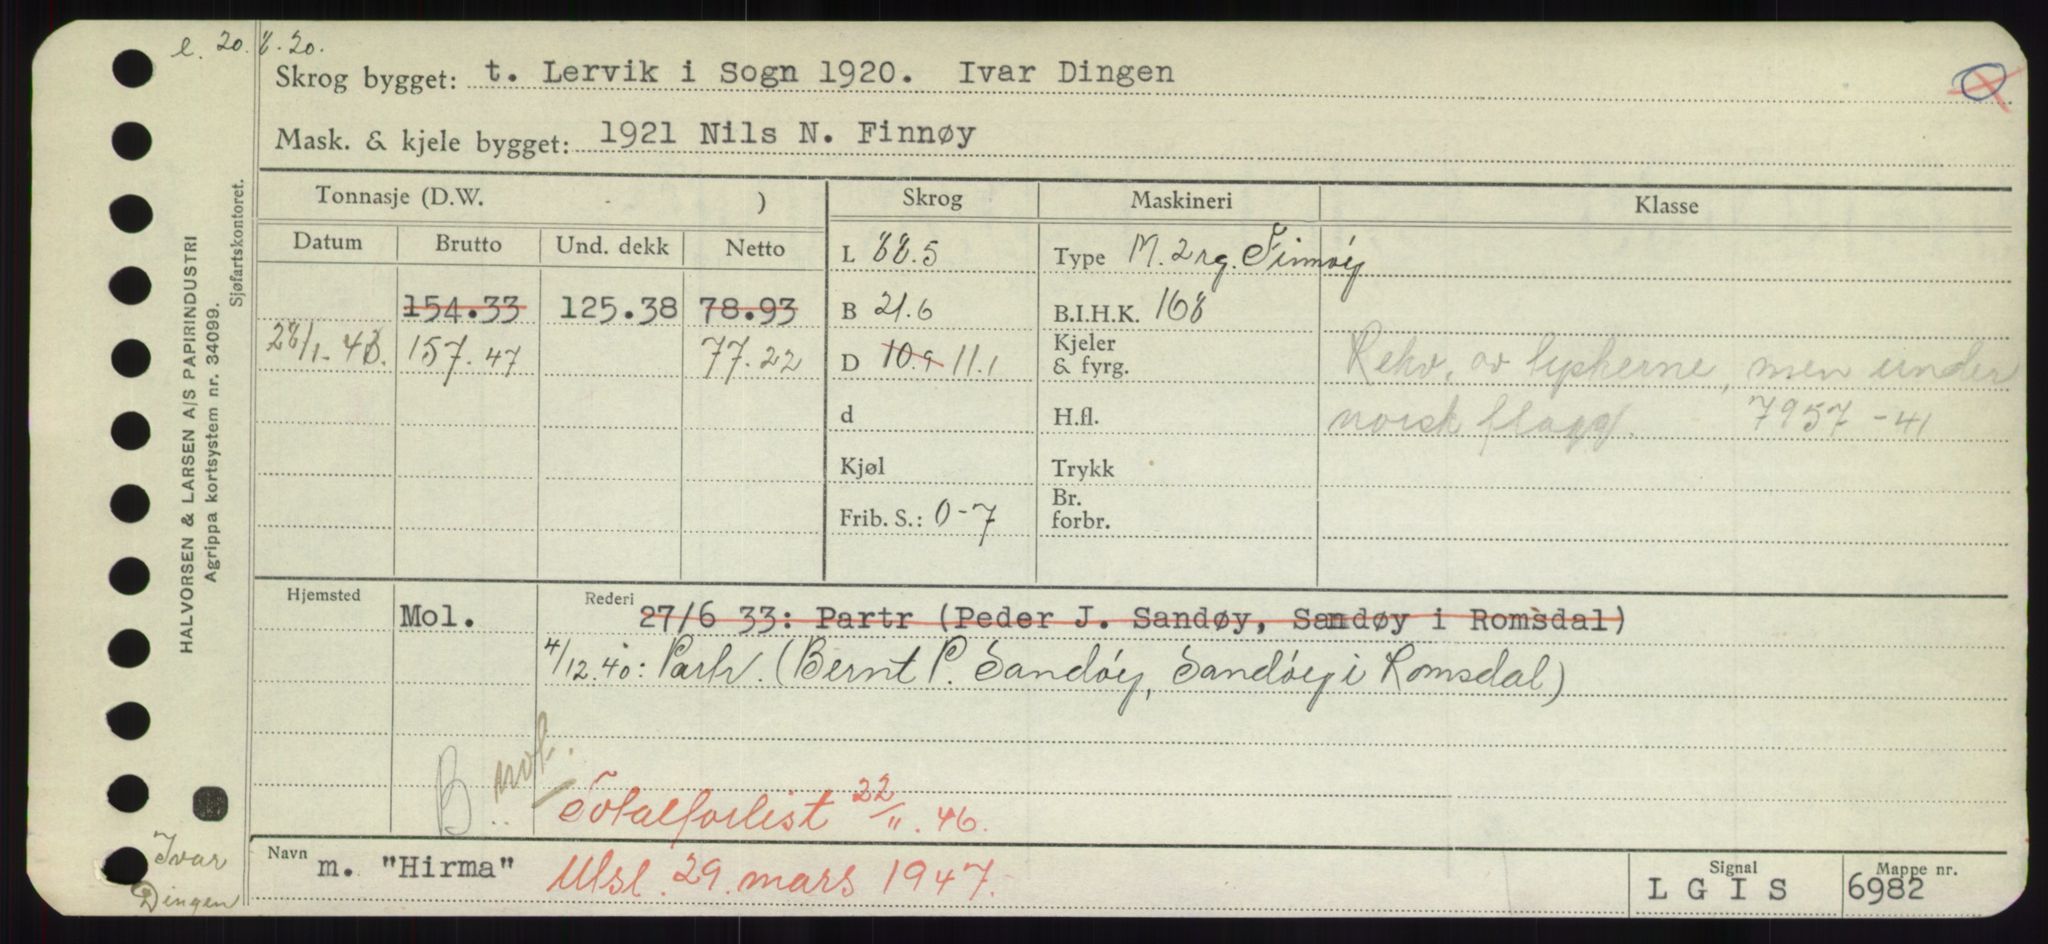 e. 20.8.20.
Skrog bygget: t. Lervik i Sogn 1920. Ivar Dingen
Mask. & kjele bygget: 1921 Nils N. Finnøy
Tonnasje (D.W. )
Skrog
Maskineri
Klasse
Datum Brutto Und. dekk Netto
L 88.5
Type M. 2 rg. Finnøy
154.33 125.38 78.93
B 21.6
B.I.H.K. 168
28/1-43. 157.47 77.22
D 10.9 11.1
Kjeler
& fyrg.
Rekv. av tyskerne, men under
d
H.fl.
norsk flagg. 7957-41
Kjøl
Trykk
Frib. S.: 0-7
Br.
forbr.
Hjemsted
Mol.
Rederi
27/6 33: Partr (Peder J. Sandøy, Sandøy i Romsdal)
4/12.40: Partr. (Bernt P. Sandøy, Sandøy i Romsdal)
B.. mot.
Totalforlist 22/11.46.
Navn m. "Hirma" Utsl. 29. mars 1947.
Signal
L G I S
Mappe nr.
6982
HALVORSEN & LARSEN A/S PAPIRINDUSTRI
Agrippa kortsystem nr. 34099.
Sjøfartskontoret.
Ivar
Dingen